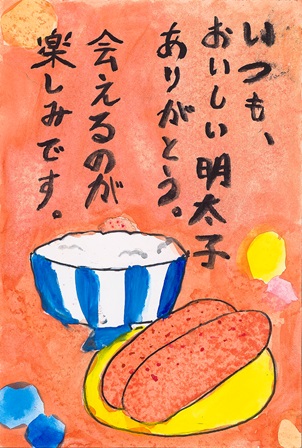 いつも、
おいしい明太子
ありがとう。
会えるのが
楽しみです。